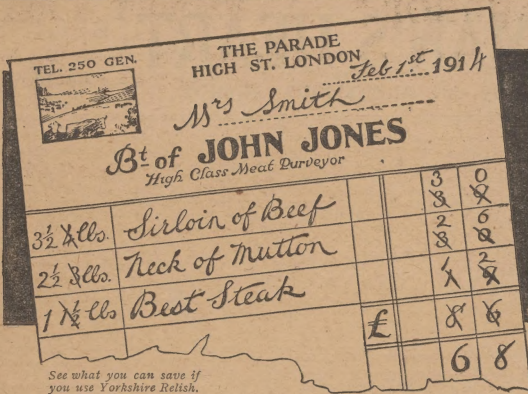 TEL. 250 GEN.
THE PARADE
HIGH ST. LONDON
Feb 1st 1914
Mrs Smith
Bt of JOHN JONES
High Class Meat Purveyor
3 0
3½ 4 lbs. Sirloin of Beef 3 9
2 6
2½ 3 lbs. Neck of Mutton 3 0
2
1 1½ lbs Best Steak 1 9
£ 8 6
6 8
See what you can save if
you use Yorkshire Relish.